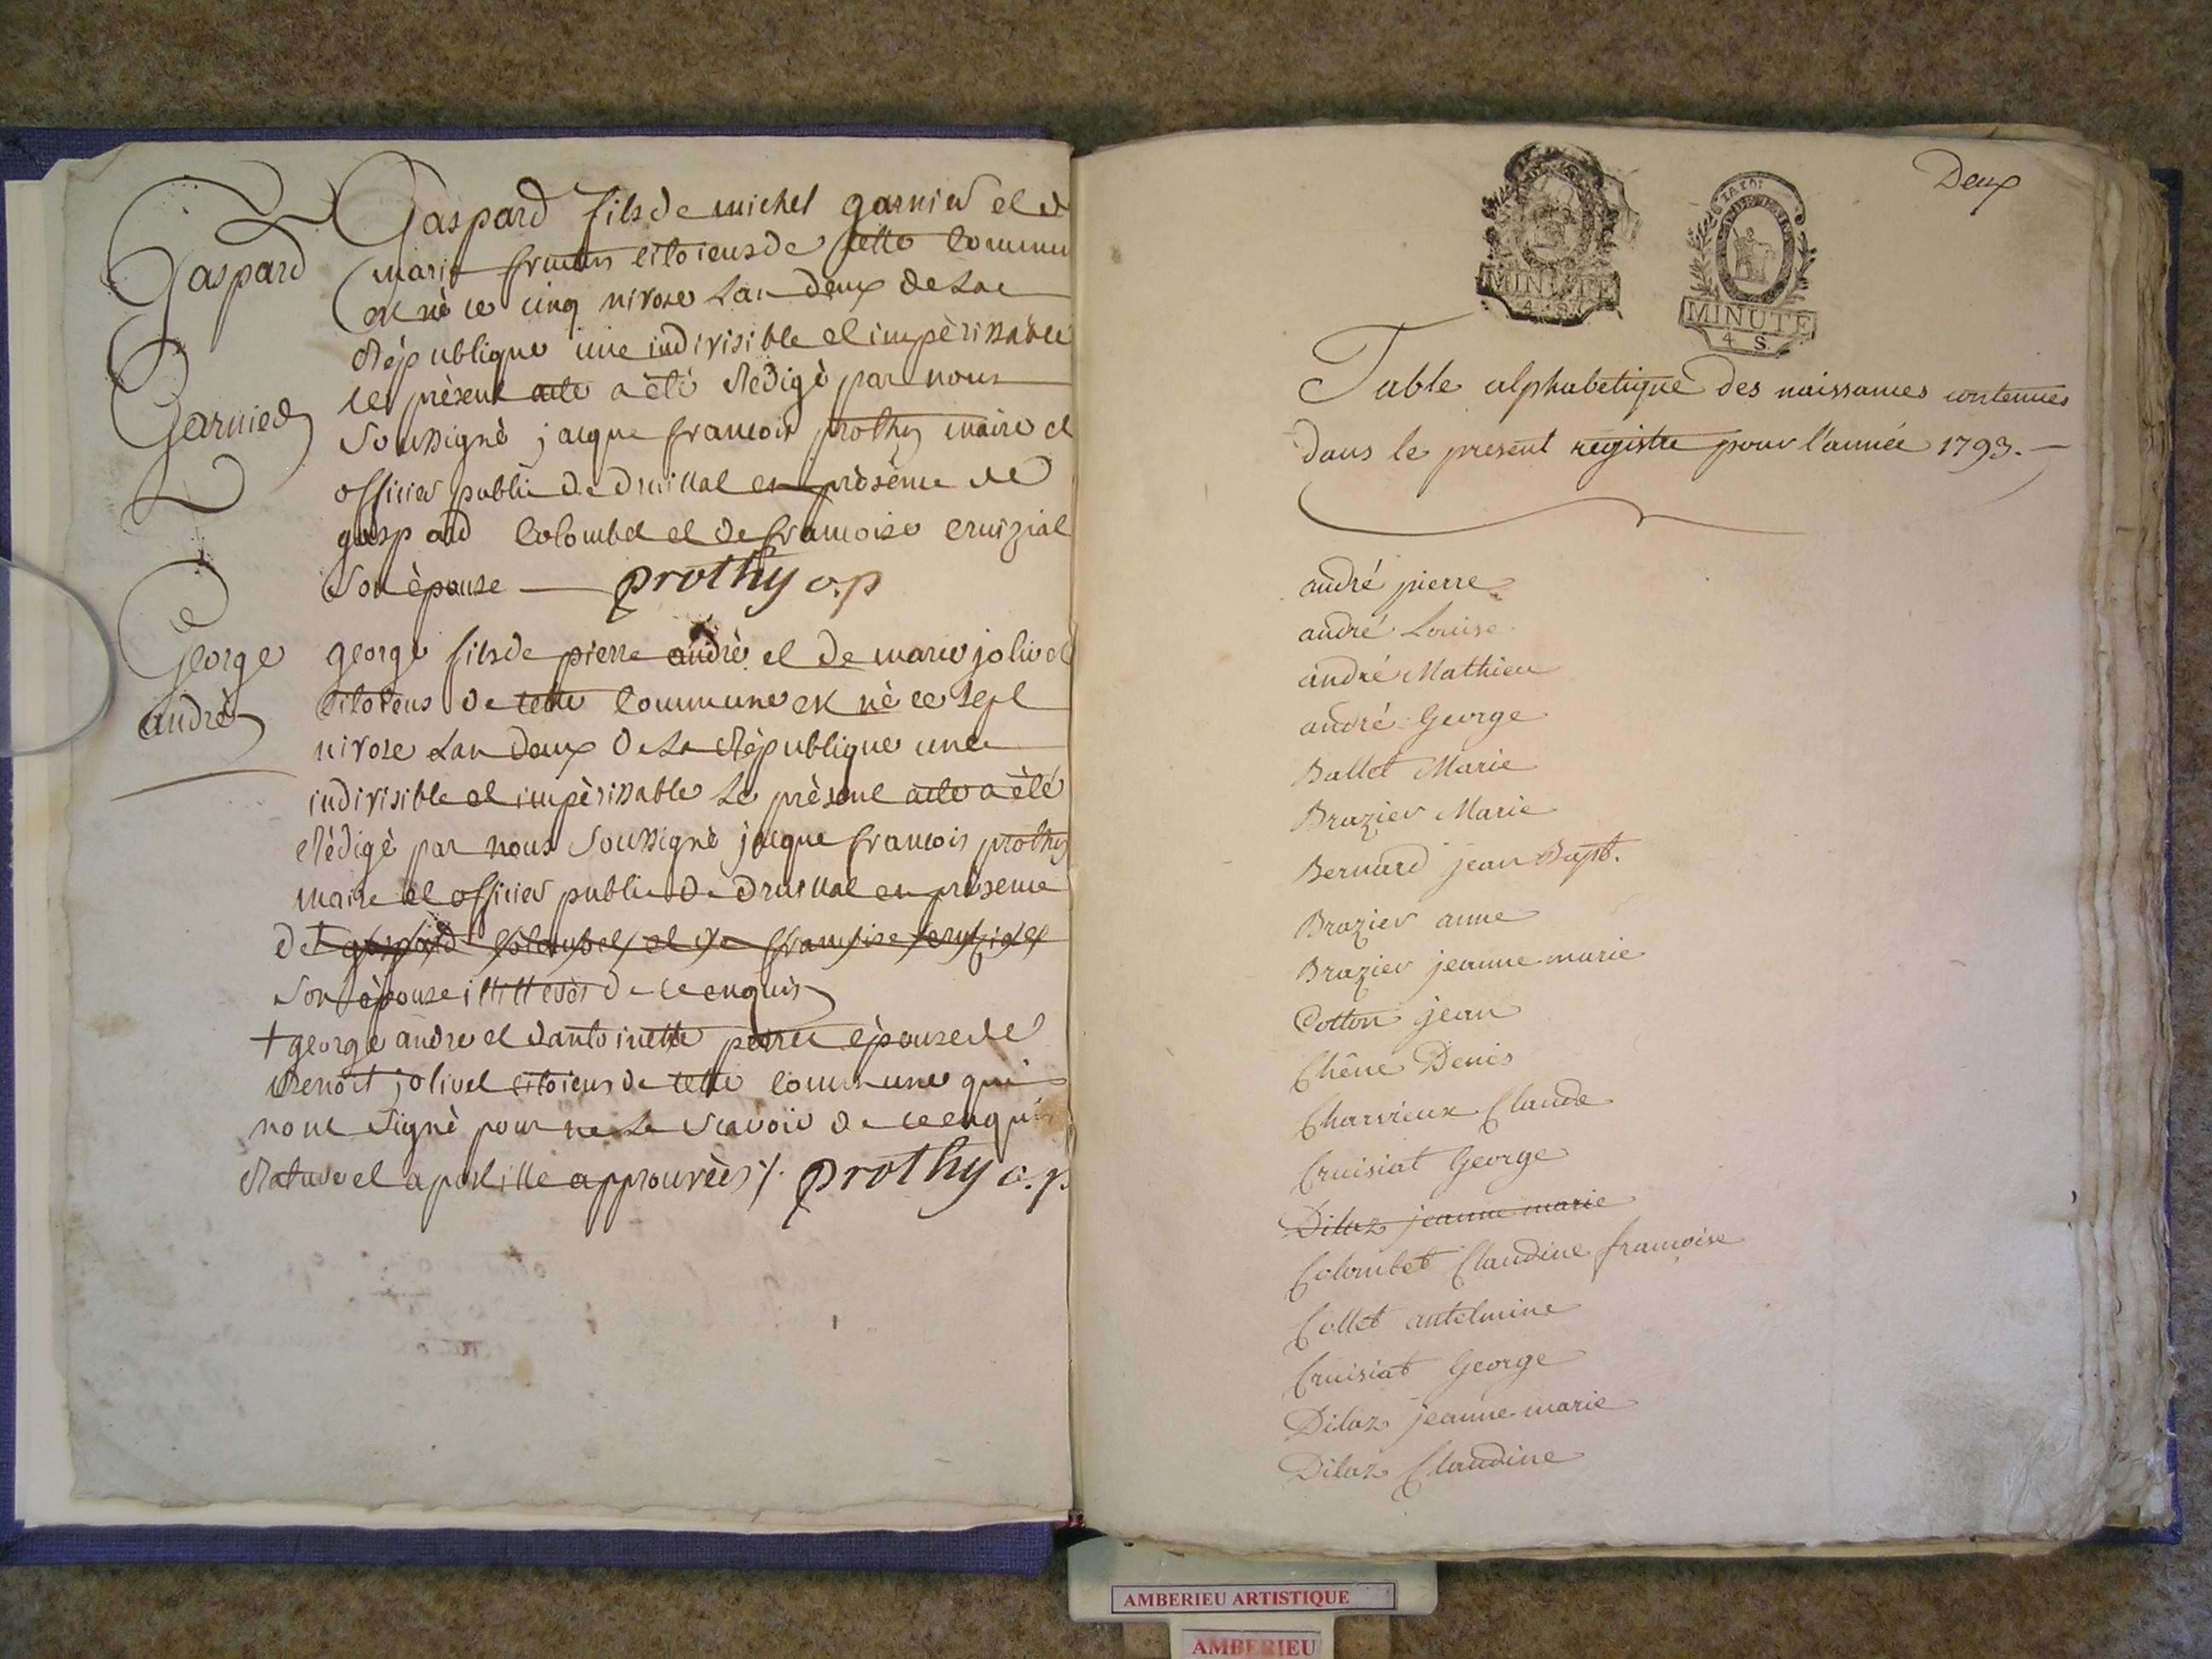 Gaspard
Garnier
Gaspard fils de michel garnier et d
marie citoiens de cette commu
est né ce cinq nivose Lan deux de La
République une indivisible et impèrissable
Le prèsent acte a èté Rédigè par nous
Soussignè jacque francois prothy maire et
officier public de druillat en prèsence de
gaspard Colombet et de francoise cruiziat
Son èpouse — prothy o.p
George
andrè
george fils de pierre andrè et de marie jolivet
citoiens de cette commune est nè ce sept
nivose Lan deux de La République une
indivisible et impèrissable Le prèsent acte a èté
Rédigè par nous Soussignè jacque francois prothy
maire et officier public de druillat en prèsence
de + gaspard Colombet et de francoise cruiziat
Son èpouse illitterès de ce enquis
+ george andre et dantoinette èpouse de
Benoit jolivet citoiens de cette commune qui
nont Signè pour ne Le Scavoir de ce enquis
Rature et apostille approuvèes /. prothy o.p
Deux
MINUTE
4 S.
MINUTE
4 S.
Table alphabetique des naissances contenues
dans le present registre pour l'année 1793. —
andré pierre
andré Louise
andré Mathieu
andré George
Ballet Marie
Brazier Marie
Bernard jean Bapt.
Brazier anne
Brazier jeanne marie
Cotton jean
Chêne Denis
Charvieux Claude
Cruisiat George
Dilaz jeanne marie
Colombet Claudine francoise
Collet antelmine
Cruisiat George
Dilaz jeanne marie
Dilaz Claudine
AMBERIEU ARTISTIQUE
AMBERIEU